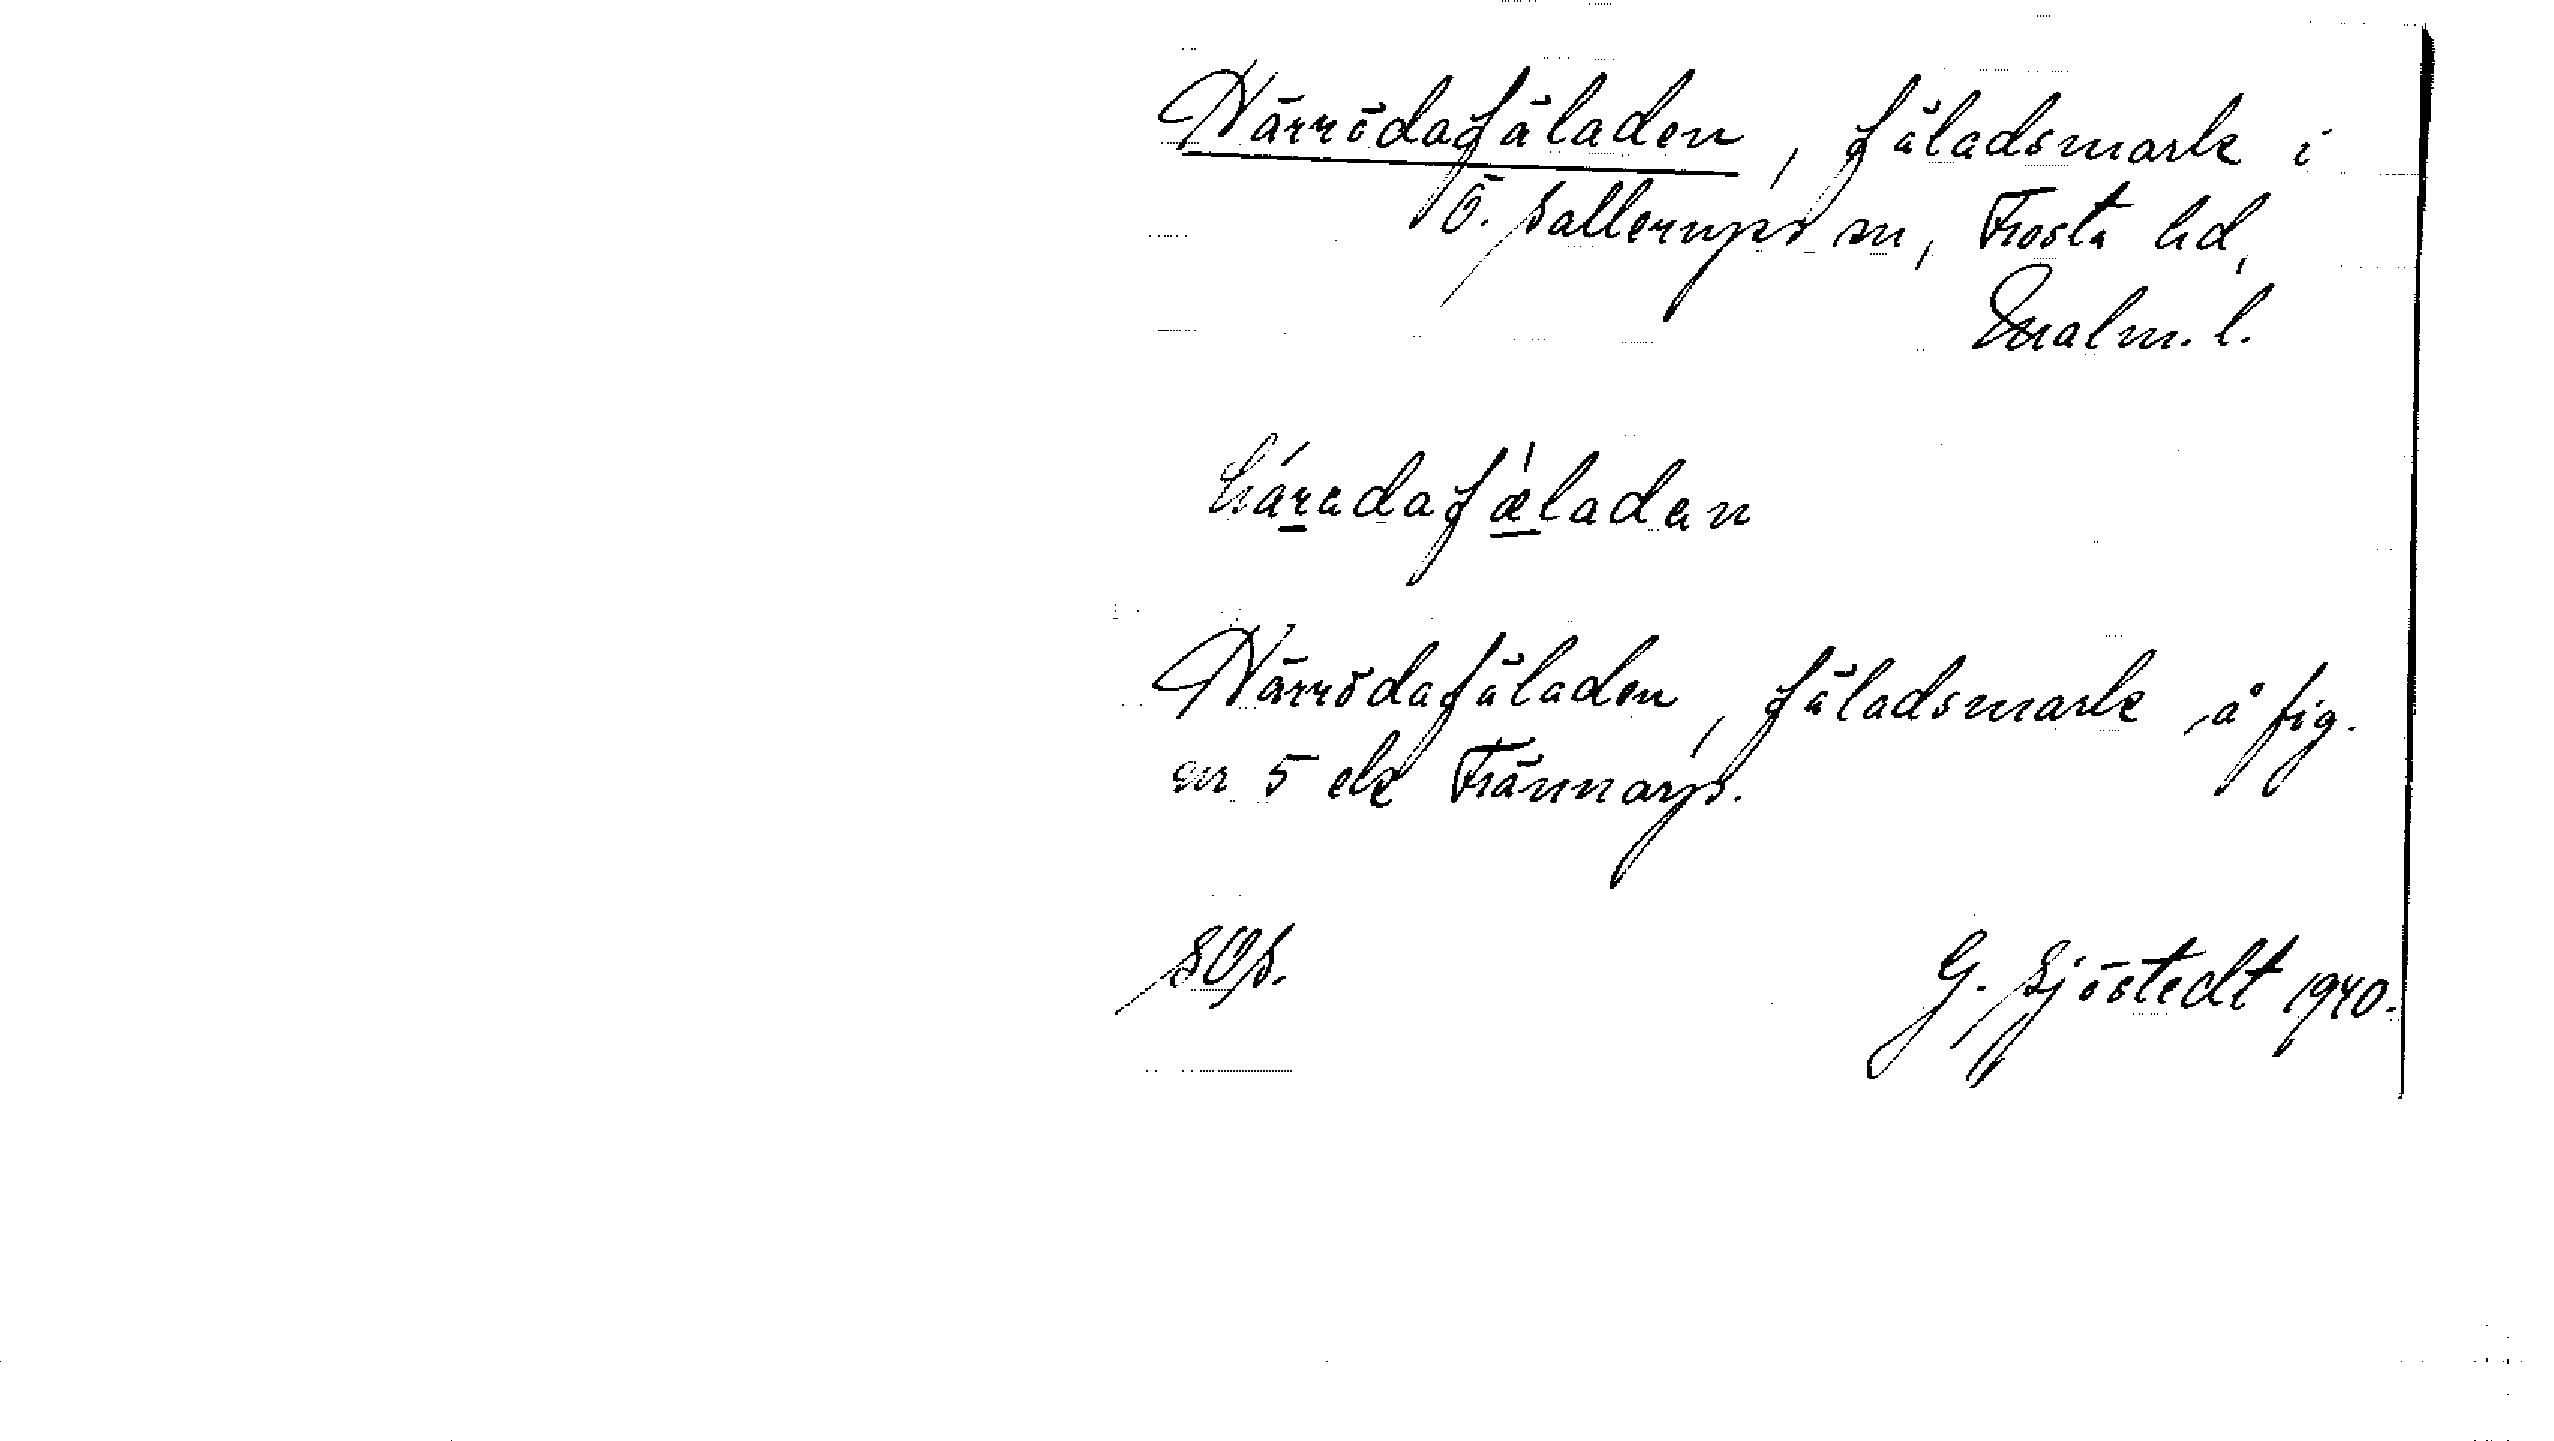 Härrödafäladen, fäladsmark i
Ö. Sallerups sn, Frosta hd,
Malm. l.
háradafæ̀ladan
Härrödafäladen, fäladsmark å fig.
nr 5 ek Fränнarp.
SOS.
G. Sjöstedt 1940.